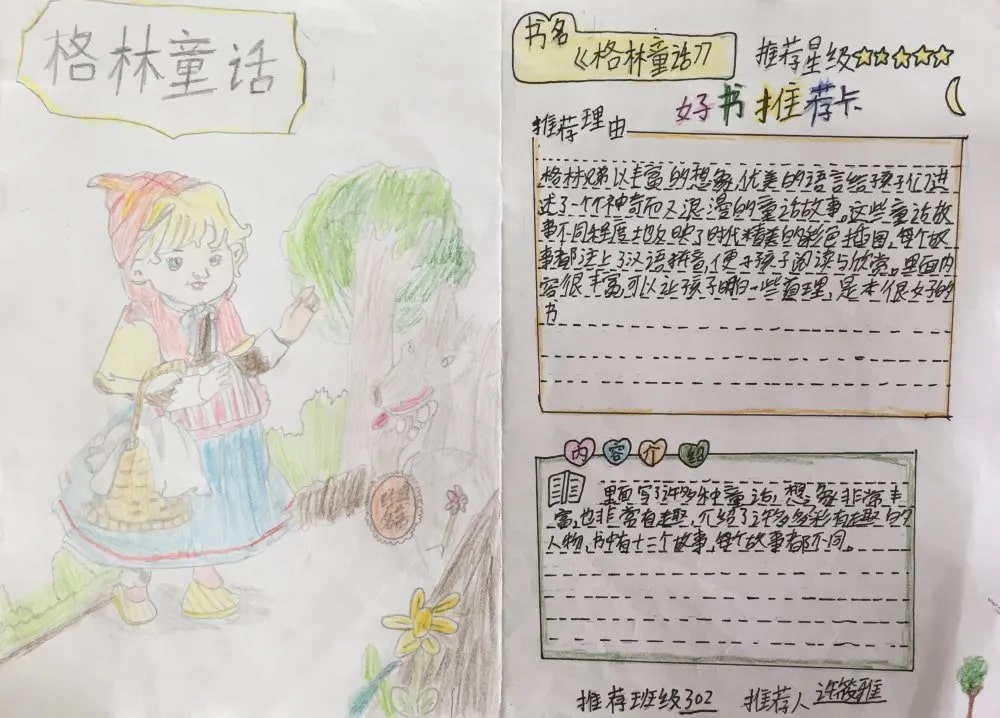 格林童话
书名
《格林童话》
推荐星级
好书推荐卡
推荐理由
格林兄弟以丰富的想象,优美的语言给孩子们讲
述了一个个神奇而又浪漫的童话故事。这些童话故
事不同程度地反映了时代精美的彩色插图,每个故
事都注上了汉语拼音,便于孩子阅读与欣赏。里面内
容很丰富可以让孩子明白一些道理,是本很好的
书
内容介绍
里面写了许多种童话,想象非常丰
富,也非常有趣,介绍了许多多彩有趣的
人物,书中有十二个故事,每个故事都不同。
推荐班级302 推荐人